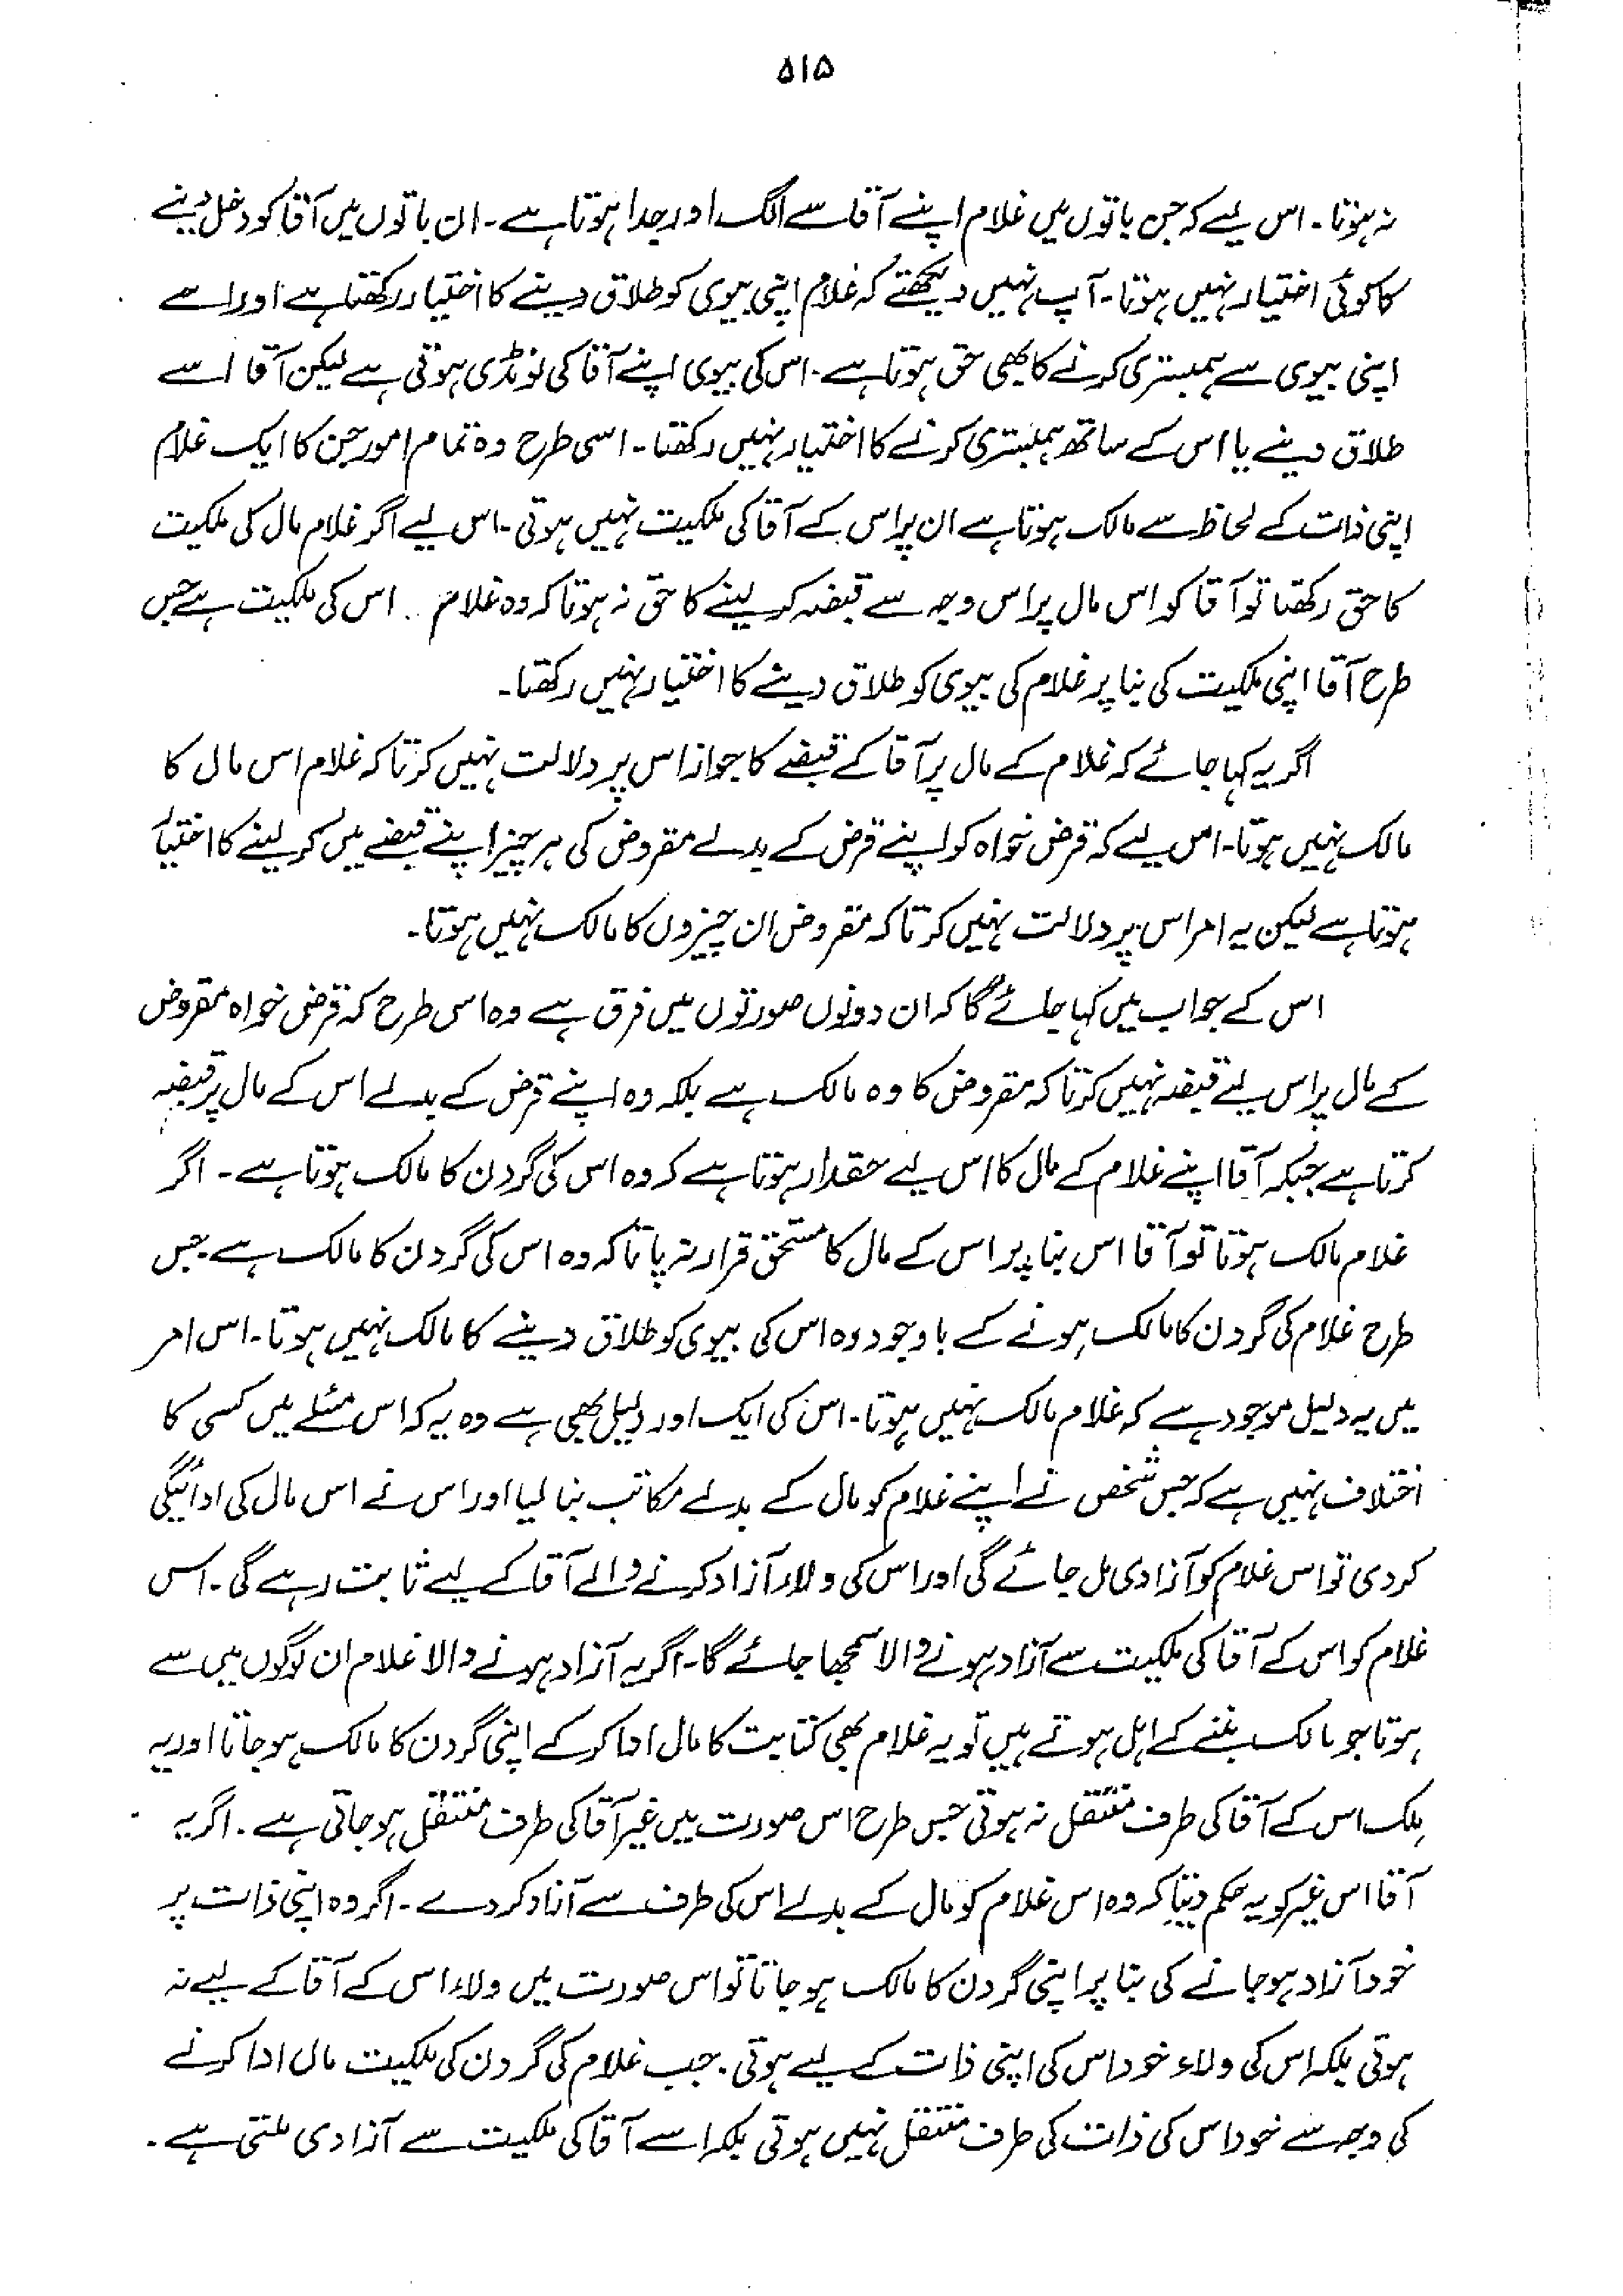 ۵۱۵
نہ ہوتا۔ اس لیے کہ جن باتوں میں غلام اپنے آقا سے الگ اور جدا ہوتا ہے۔ ان باتوں میں آقا کو دخل دینے
کا کوئی اختیار نہیں ہوتا۔ آپ نہیں دیکھتے کہ غلام اپنی بیوی کو طلاق دینے کا اختیار رکھتا ہے اور اسے
اپنی بیوی سے ہمبستری کرنے کا بھی حق ہوتا ہے۔ اس کی بیوی اپنے آقا کی لونڈی ہوتی ہے لیکن آقا اسے
طلاق دینے یا اس کے ساتھ ہمبستری کرنے کا اختیار نہیں رکھتا۔ اسی طرح وہ تمام امور جن کا ایک غلام
اپنی ذات کے لحاظ سے مالک ہوتا ہے ان پر اس کے آقا کی ملکیت نہیں ہوتی۔ اس لیے اگر غلام مال کی ملکیت
کا حق رکھتا تو آقا کو اس مال پر اس وجہ سے قبضہ کر لینے کا حق نہ ہوتا کہ وہ غلام اس کی ملکیت ہے جس
طرح آقا اپنی ملکیت کی بنا پر غلام کی بیوی کو طلاق دینے کا اختیار نہیں رکھتا۔
اگر یہ کہا جائے کہ غلام کے مال پر آقا کے قبضے کا جواز اس پر دلالت نہیں کرتا کہ غلام اس مال کا
مالک نہیں ہوتا۔ اس لیے کہ قرض خواہ کو اپنے قرض کے بدلے مقروض کی ہر چیز اپنے قبضے میں کر لینے کا اختیار
ہوتا ہے لیکن یہ امر اس پر دلالت نہیں کرتا کہ مقروض ان چیزوں کا مالک نہیں ہوتا۔
اس کے جواب میں کہا جائے گا کہ ان دونوں صورتوں میں فرق ہے وہ اس طرح کہ قرض خواہ مقروض
کے مال پر اس لیے قبضہ نہیں کرتا کہ مقروض کا وہ مالک ہے بلکہ وہ اپنے قرض کے بدلے اس کے مال پر قبضہ
کرتا ہے جبکہ آقا اپنے غلام کے مال کا اس لیے حقدار ہوتا ہے کہ وہ اس کی گردن کا مالک ہوتا ہے۔ اگر
غلام مالک ہوتا تو آقا اس بنا پر اس کے مال کا مستحق قرار نہ پاتا کہ وہ اس کی گردن کا مالک ہے جس
طرح غلام کی گردن کا مالک ہونے کے باوجود وہ اس کی بیوی کو طلاق دینے کا مالک نہیں ہوتا۔ اس امر
میں یہ دلیل موجود ہے کہ غلام مالک نہیں ہوتا۔ اس کی ایک اور دلیل بھی ہے وہ یہ کہ اس مسئلے میں کسی کا
اختلاف نہیں ہے کہ جس شخص نے اپنے غلام کو مال کے بدلے مکاتب بنا لیا اور اس نے اس مال کی ادائیگی
کر دی تو اس غلام کو آزادی مل جائے گی اور اس کی ولاء آزاد کرنے والے آقا کے لیے ثابت رہے گی۔ اس
غلام کو اس کے آقا کی ملکیت سے آزاد ہونے والا سمجھا جائے گا۔ اگر یہ آزاد ہونے والا غلام ان لوگوں میں سے
ہوتا جو مالک بننے کے اہل ہوتے ہیں تو یہ غلام بھی کتابت کا مال ادا کر کے اپنی گردن کا مالک ہو جاتا اور یہ
ملک اس کے آقا کی طرف منتقل نہ ہوتی جس طرح اس صورت میں غیر آقا کی طرف منتقل ہو جاتی ہے۔ اگر یہ
آقا اس غیر کو یہ حکم دیتا کہ وہ اس غلام کو مال کے بدلے اس کی طرف سے آزاد کر دے۔ اگر وہ اپنی ذات پر
خود آزاد ہو جانے کی بنا پر اپنی گردن کا مالک ہو جاتا تو اس صورت میں ولاء اس کے آقا کے لیے نہ
ہوتی بلکہ اس کی ولاء خود اس کی اپنی ذات کے لیے ہوتی۔ جب غلام کی گردن کی ملکیت مال ادا کرنے
کی وجہ سے خود اس کی ذات کی طرف منتقل نہیں ہوتی بلکہ اسے آقا کی ملکیت سے آزادی ملتی ہے۔